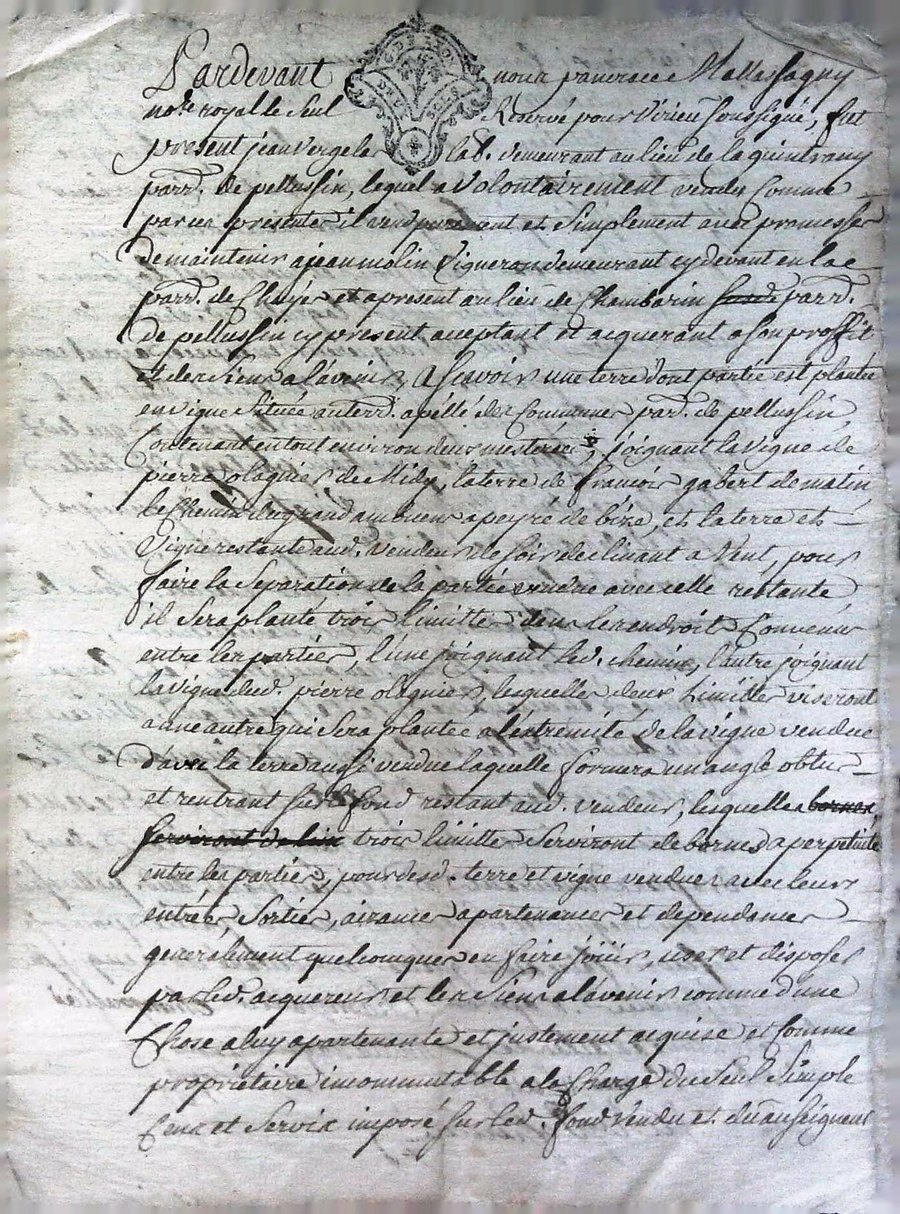 Pardevant nous pancrace Mallassagny
no.re royal le seul Reservé pour Virieu soussigné, fut
present jean vergelas lab. demeurant au lieu de la quintrany
parr. de pellussin, lequel a volontairement vendu Comme
par ces presentes il vend purement et simplement avec promesses
de maintenir a jean molin Vigneron demeurant cy devant en la
parr. de Chuyer et apresent au lieu de Chambarin parr.
de pellussin cy present acceptant et acquerant a son proffit
et des siens a l'avenir, a scavoir une terre dont partie est plantée
en vigne située au terr. apéllé des Communes parr. de pellussin
Contenant en tout environ deux mesterées, joignant la vigne de
pierre olagnier de Midy, la terre de francois gabert de matin
le Chemin du grand ambuens a peyré de bize, et la terre et
Vigne restante aud. vendeur de soir declinant a Vent, pour
faire la Separation de la partie vendue avec celle restante
il sera planté trois limittes dans les endroits Convenus
entre les parties, l'une joignant led. chemin, l'autre joignant
la vigne dud. pierre olagnier, lesquelles deux Limittes viseront
a une autre qui sera plantée a l'extremité de la vigne vendue
d'avec la terre aussi vendue laquelle formera un angle obtus
et rentrant sur le fond restant aud. vendeur, lesquelles bornes
serviront de trois limittes Serviront de bornes a perpetuité
entre les parties, pour desd. terre et vigne vendues avec leurs
entrées, Sorties, aizances apartenances et dependances
generalement quelconques en faire joüir, user et disposer
par led. acquereur et les siens a l'avenir comme d'une
Chose a luy apartenante et justement acquise et Comme
propriétaire incommutable a la Charge du Seul Simple
Cens et Servix imposé sur led. fond vendu et du au seigneur